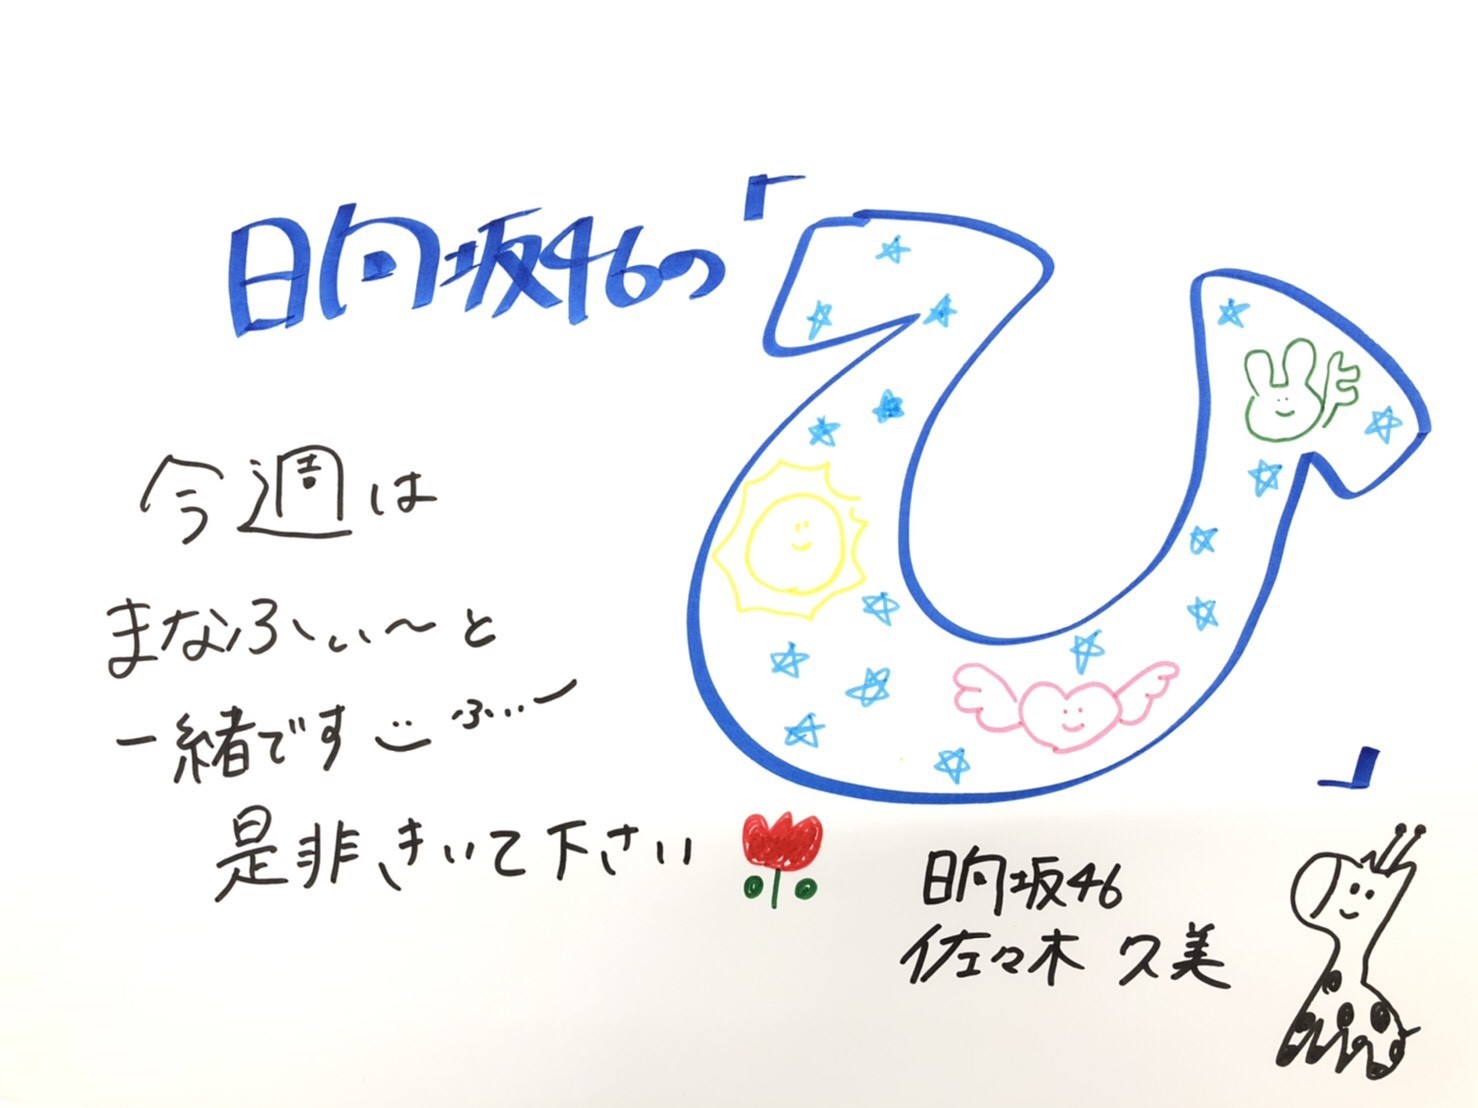 日向坂46の「ひ」
今週は
まなふぃ〜と
一緒です ふぃー
是非きいて下さい
日向坂46
佐々木 久美